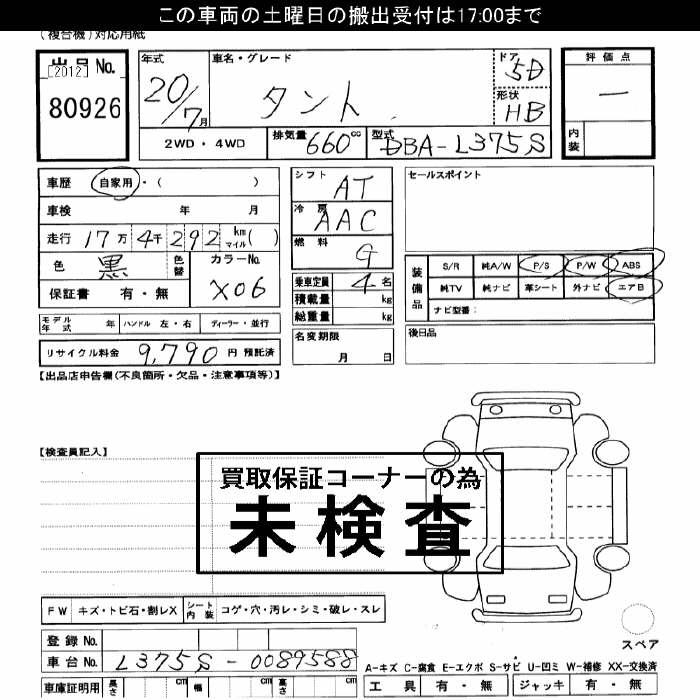 この車両の土曜日の搬出受付は17:00まで
(複合機)対応用紙
出品 No.
[2012]
80926
年式
20/7月
車名・グレード
タント
ドア
5D
形状
HB
評価点
一
内装
2WD・4WD
排気量 660cc
型式 DBA-L375S
車歴 自家用・( )
車検 年 月
走行 17万 4千 292 km マイル( )
色 黒 色替
カラーNo. X06
保証書 有・無
シフト AT
冷房 AAC
燃料 G
乗車定員 4 名
積載量 kg
総重量 kg
名変期限
月 日
セールスポイント
装備品
S/R 純A/W P/S P/W ABS
純TV 純ナビ 革シート 外ナビ エアB
ナビ型番:
後日品
モデル年式 年 ハンドル 左・右 ディーラー・並行
リサイクル料金 9,790 円 預託済
【出品店申告欄(不良箇所・欠品・注意事項等)】
【検査員記入】
買取保証コーナーの為
未検査
FW キズ・トビ石・割レX シート内装 コゲ・穴・汚レ・シミ・破レ・スレ
登録 No.
車台No. L375S-0089588
車庫証明用 長さ cm 幅 cm 高さ cm
スペア
A-キズ C-腐食 E-エクボ S-サビ U-凹ミ W-補修 XX-交換済
工具 有・無 ジャッキ 有・無